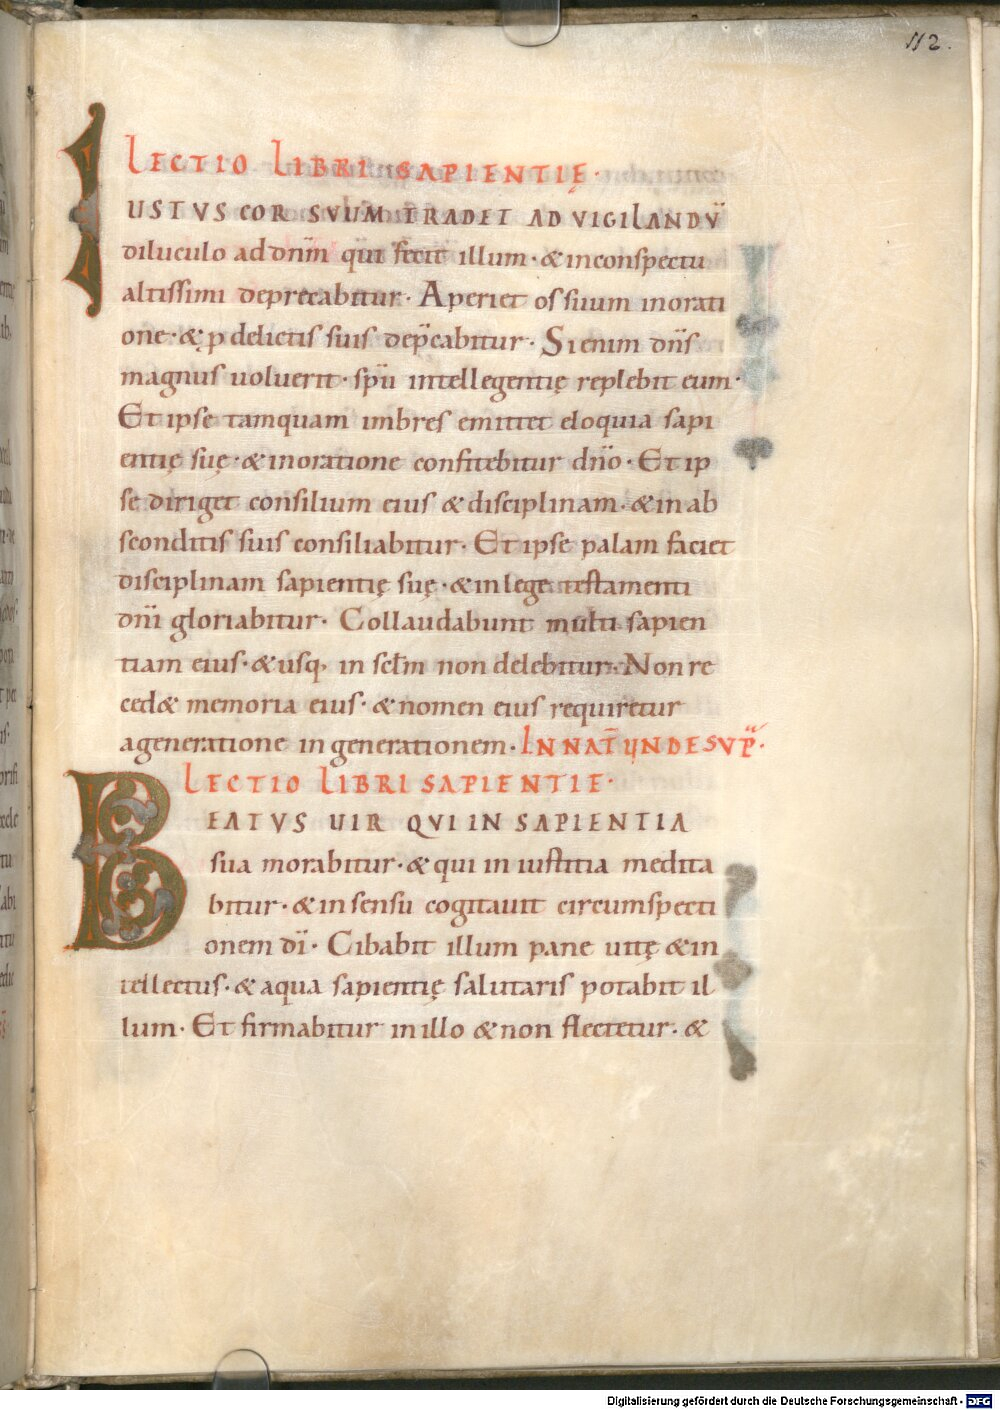 112.
LECTIO LIBRI SAPIENTIĘ·
IUSTVS COR SVUM TRADET AD VIGILANDV̄
diluculo ad dn̄m qui fecit illum· & inconspectu
altissimi deprecabitur· Aperiet os suum inorati
one· & ꝓ delictis suis dep̄cabitur· Si enim dn̄s
magnus uoluerit· sp̄u intellegentię replebit eum·
Et ipse tamquam imbres emittet eloquia sapi
entię suę· & inoratione confitebitur dn̄o· Et ip
se diriget consilium eius & disciplinam· & in ab
sconditis suis consiliabitur· Et ipse palam faciet
disciplinam sapientię suę· & in lege testamenti
dn̄i gloriabitur· Collaudabunt multi sapien
tiam eius· & usq; in sclm̄ non delebitur· Non re
ced& memoria eius· & nomen eius requiretur
ageneratione in generationem· IN NAT̄ UNDE SVP̄·
LECTIO LIBRI SAPIENTIE·
BEATVS UIR QVI IN SAPIENTIA
sua morabitur· & qui in iustitia medita
bitur· & in sensu cogitauit circumspecti
onem dī· Cibabit illum pane uitę & in
tellectus· & aqua sapientię salutaris potabit il
lum· Et firmabitur in illo & non flectetur· &
Digitalisierung gefördert durch die Deutsche Forschungsgemeinschaft - DFG